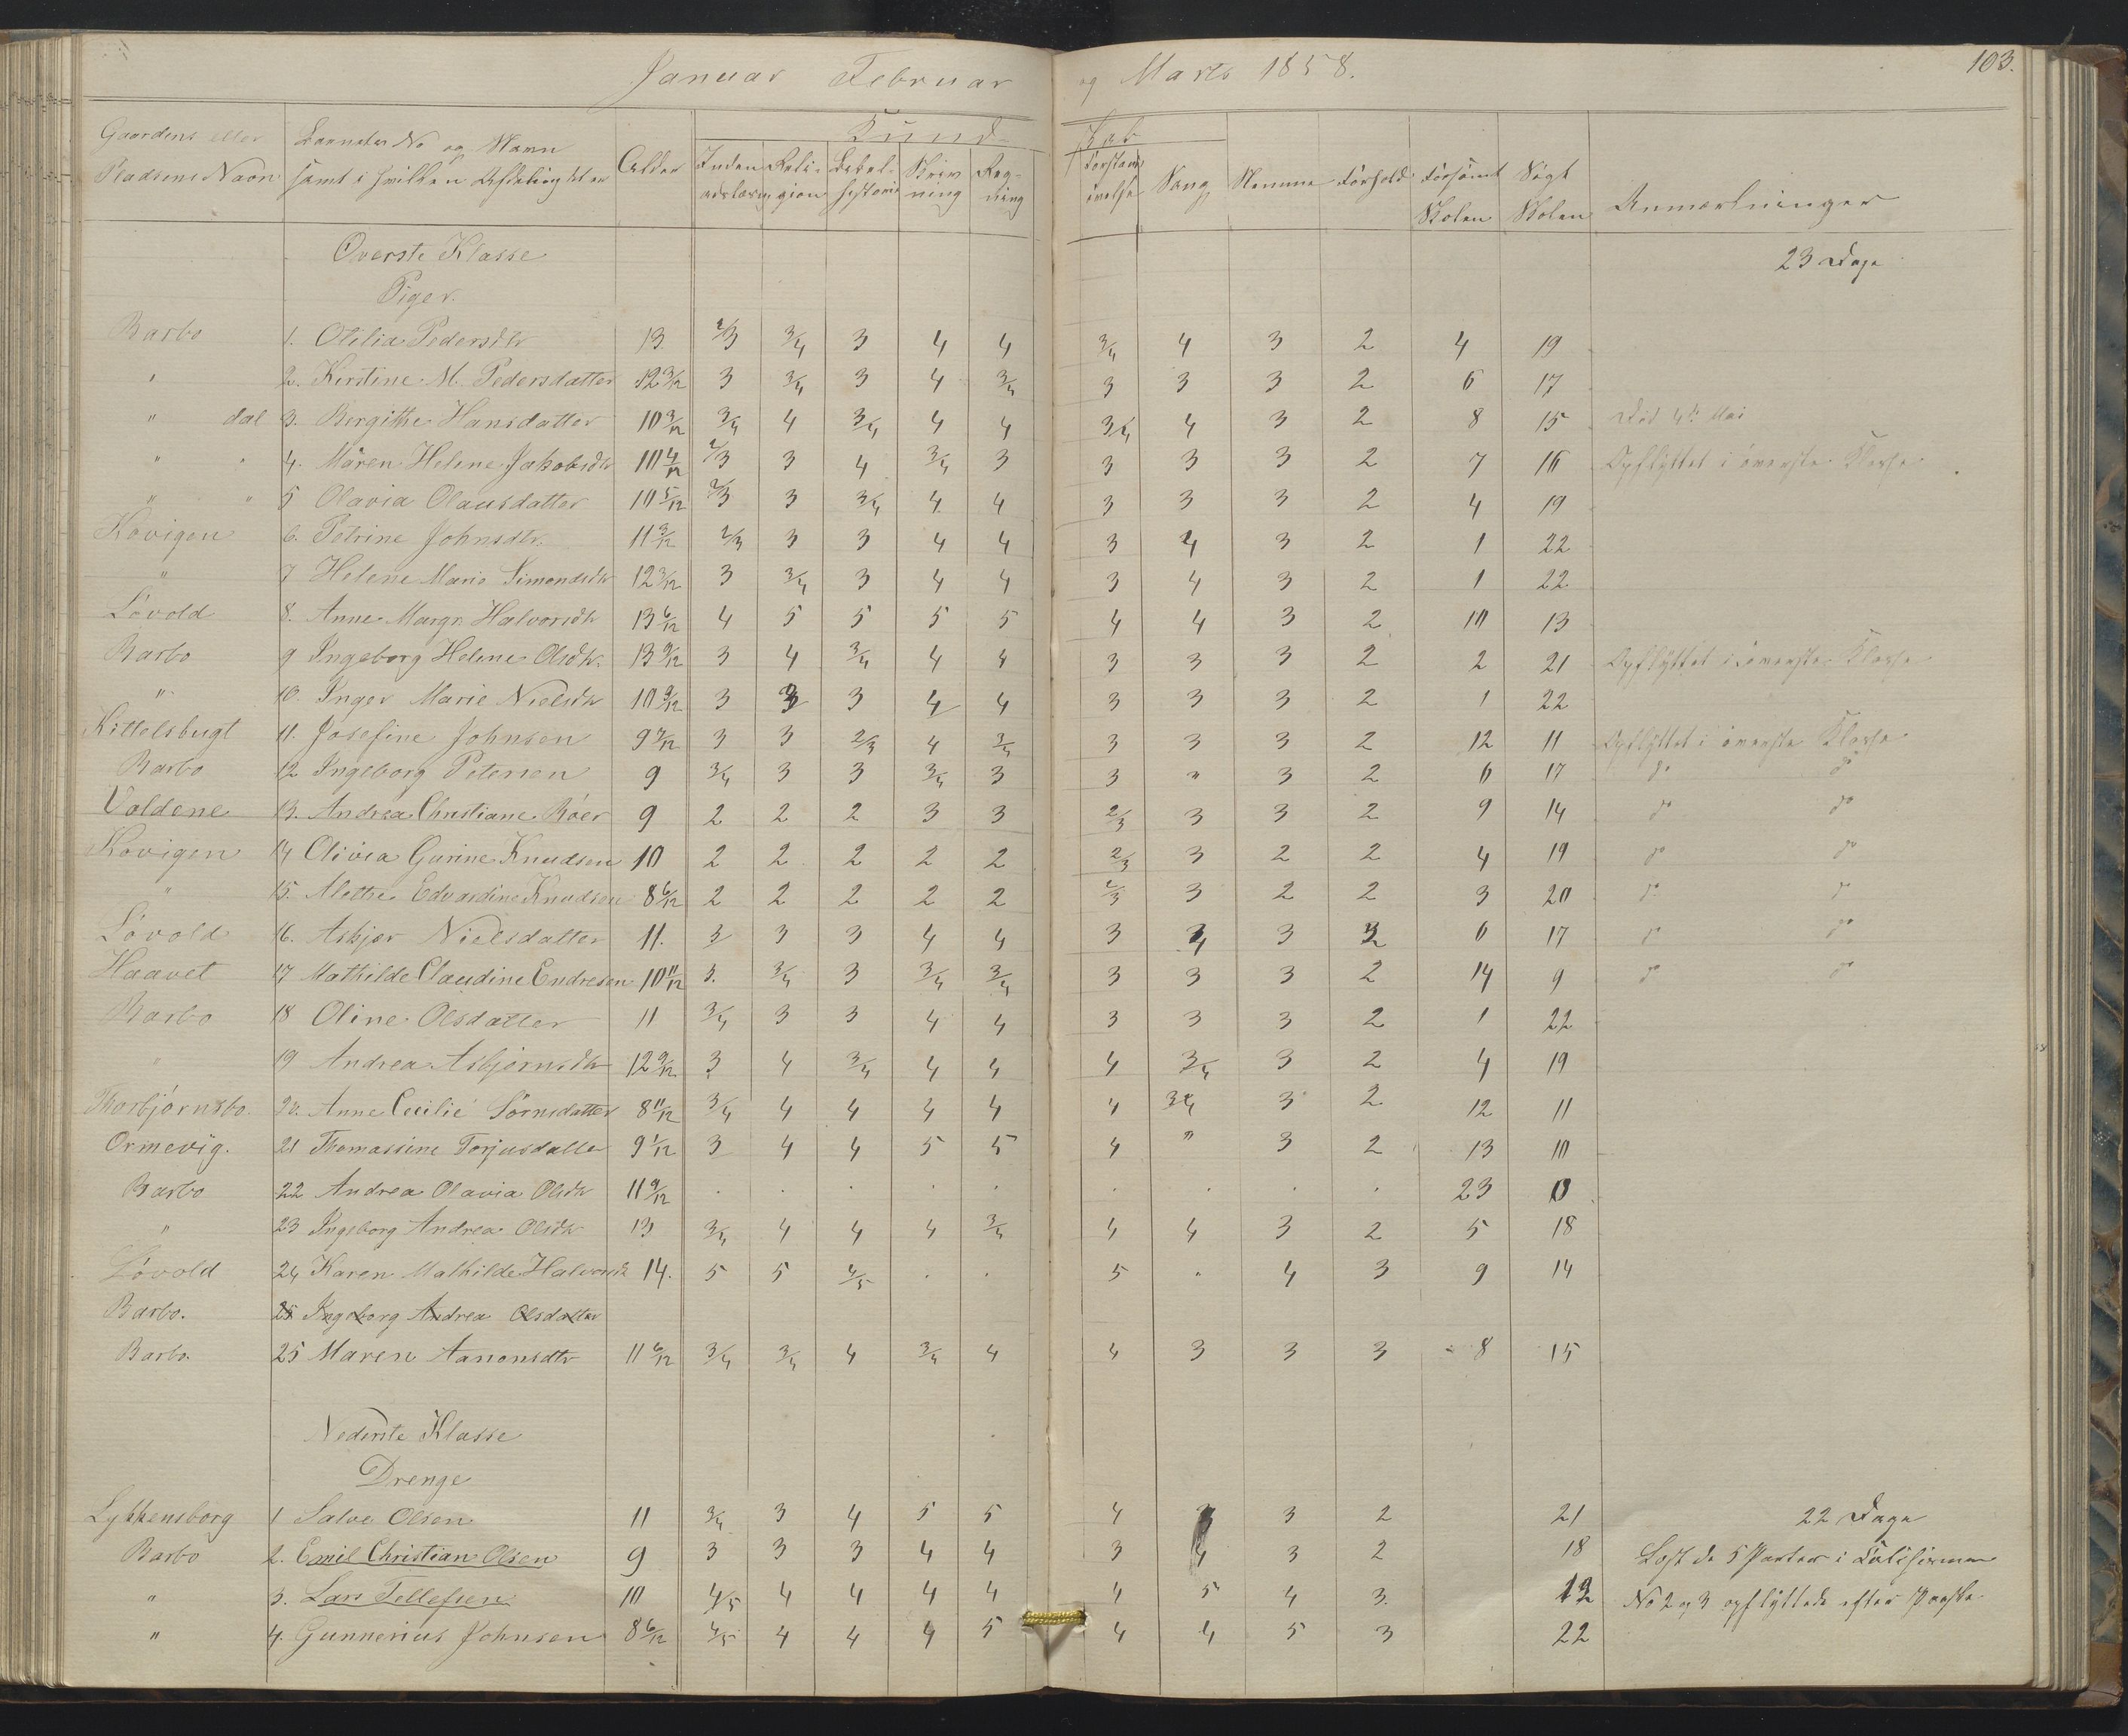 Januar Februar og Marts 1858. 103.
Kund skab
Gaardens eller Pladsens Navn Barnets No og Navn samt i hvilken Afdeling det er Alder Inden adslæsn Reli- gion Bibel- historie Skriv ning Reg- ning Forstands øvelse Sang Nemme Forhold Forsømt Skolen Søgt Skolen Anmærkninger
Överste Klasse 23 Dage
Piger.
Barbo 1. Otilia Pedersdtr 13 2/3 3/4 3 4 4 3/4 4 3 2 4 19
" 2. Kirstine M. Pedersdatter 12 3/12 3 3/4 3 4 3/4 3 3 3 2 6 17
" dal 3. Bergithe Hansdatter 10 3/12 3/4 4 3/4 4 4 3/4 4 3 2 8 15 Död 4de Mai
" " 4. Mären Helene Jakobsdtr 10 4/12 2/3 3 4 3/4 3 3 3 3 2 7 16 Opflyttet i överste Klasse
" " 5 Olavia Olausdatter 10 5/12 2/3 3 3/4 4 4 3 3 3 2 4 19
Kovigen 6. Petrine Johnsdtr. 11 3/12 2/3 3 3 4 4 3 4 3 2 1 22
" 7 Helene Marie Simondsdtr 12 3/12 3 3/4 3 4 4 3 4 3 2 1 22
Lövold 8. Anne Margr. Halvorsdtr 13 6/12 4 5 5 5 5 4 4 3 2 10 13
Barbo 9 Ingeborg Helene Olsdtr. 13 9/12 3 4 3/4 4 4 3 3 3 2 2 21 Opflyttet i överste Klasse
" 10. Inger Marie Nielsdtr 10 9/12 3 3 3 4 4 3 3 3 2 1 22
Kittelsbugt 11. Josefine Johnsen 9 7/12 3 3 2/3 4 3/4 3 3 3 2 12 11 Opflyttet i överste Klasse
Barbo 12 Ingeborg Petersen 9 3/4 3 3 3/4 3 3 " 3 2 6 17 do do
Voldene 13. Andrea Christiane Röer 9 2 2 2 3 3 2/3 3 3 2 9 14 do do
Kovigen 14 Olivia Gurine Knudsen 10 2 2 2 2 2 2/3 3 2 2 4 19 do do
" 15. Alethe Edvardine Knudsen 8 6/12 2 2 2 2 2 2/3 3 2 2 3 20 do do
Lövold 16. Askjer Nielsdatter 11. 3 3 3 4 4 3 4 3 2 6 17 do do
Haavet 17 Mathilde Claudine Endresen 10 11/12 3. 3/4 3 3/4 3/4 3 3 3 2 14 9 do do
Barbo 18 Oline Olsdatter 11 3/4 3 3 4 4 3 3 3 2 1 22
" 19 Andrea Asbjörnsdtr 12 9/12 3 4 3/4 4 4 4 3/4 3 2 4 19
Thorbjörnsbo. 20. Anne Cecilie Sörnsdatter 8 11/12 3/4 4 4 4 4 4 3/4 3 2 12 11
Ormevig. 21 Thomassine Torjusdatter 9 1/12 3 4 4 5 5 4 " 3 2 13 10
Barbo 22 Andrea Olavia Olsdtr 11 9/12 . . . . . . . . . 23 0
" 23 Ingeborg Andrea Olsdtr 13 3/4 4 4 4 3/4 4 4 3 2 5 18
Lövold 24 Karen Mathilde Halvorsdtr 14. 5 5 4/5 . . 5 . 4 3 9 14
Barbo. 25 Ingeborg Andrea Olsdatter
Barbo. 25 Maren Aanonsdtr 11 6/12 3/4 3/4 4 3/4 4 4 3 3 3 8 15
Nederste Klasse
Drenge
Lykkensborg 1 Salve Olsen 11 3/4 3 4 5 5 4 3 2 21 22 Dage
Barbo 2. Emil Christian Olsen 9 3 3 3 4 4 3 4 3 2 18 Læst de 5 Parter i
" 3. Lars Tellefsen 10 4/5 4 4 4 4 4 5 4 3. 12 No 2 og 3 opflyttede efter Paaske
" 4. Gunnerius Johnsen 8 6/12 4/5 4 4 4 5 4 4 5 3 22